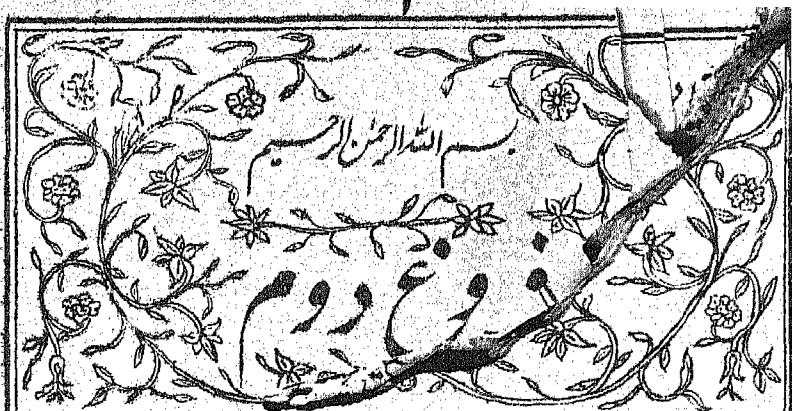 بسم الله الرحمن الرحیم
فروغ دوم